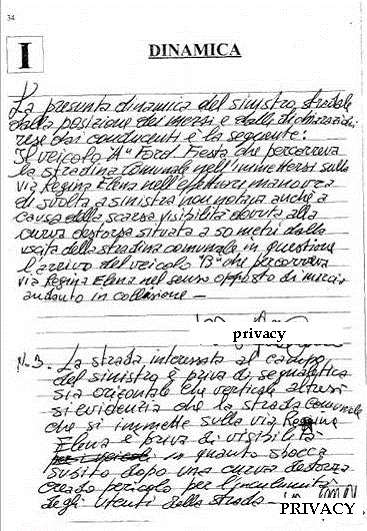 34
I
DINAMICA
La presunta dinamica del sinistro stradale
dalla posizione dei mezzi e dalle dichiarazioni
rese dai conducenti è la seguente:
Il veicolo "A" Ford Fiesta che percorreva
la stradina comunale nell'immettersi sulla
via Regina Elena nell'effettuare manovra
di svolta a sinistra non notava anche a
causa della scarsa visibilità dovuta alla
curva destorsa situata a 50 metri dalla
uscita della stradina comunale in questione
l'arrivo del veicolo "B" che percorreva
via Regina Elena nel senso opposto di marcia
andando in collisione —
privacy
N.B. La strada interessata al campo
del sinistro è priva di segnaletica
sia orizontale che verticale altresì
si evidenzia che la strada comunale
che si immette sulla via Regina
Elena è priva di visibilità
in quanto sbocca
subito dopo una curva destorsa
creando pericolo per l'incolumità
degli utenti della strada —
PRIVACY